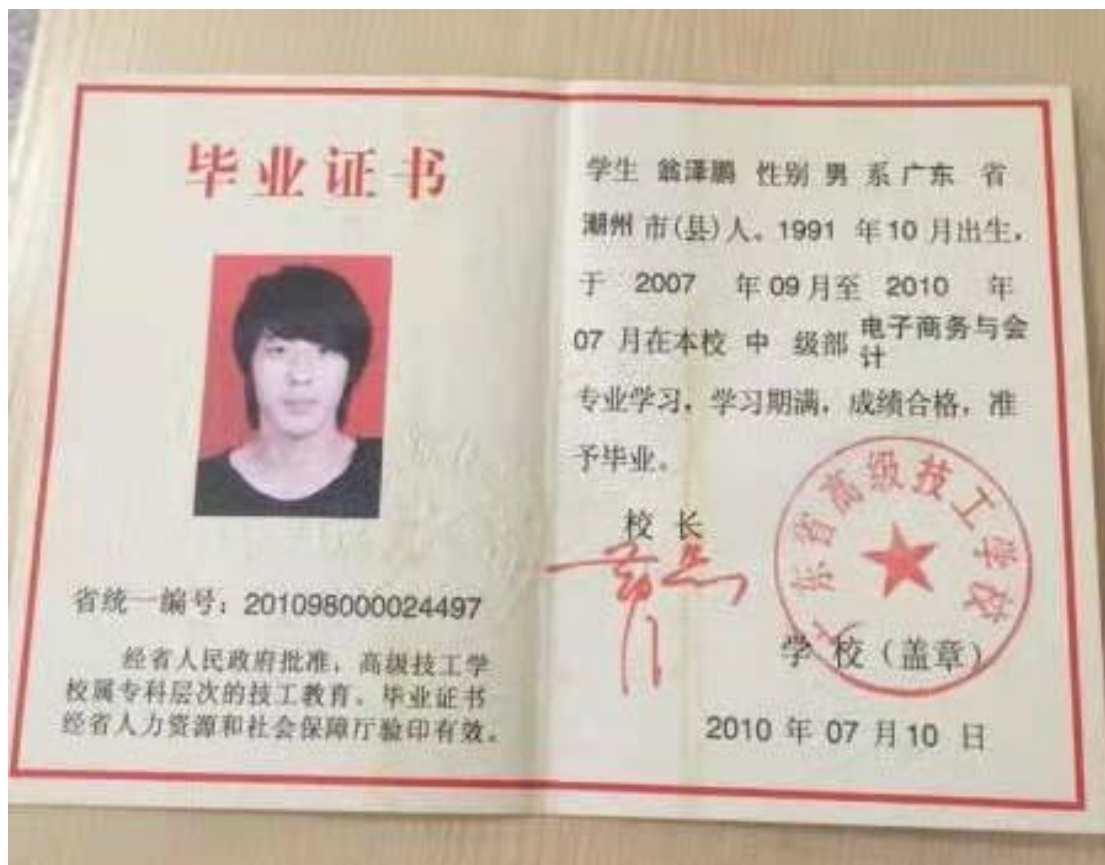 毕业证书
省统一编号：201098000024497
经省人民政府批准，高级技工学
校属专科层次的技工教育。毕业证书
经省人力资源和社会保障厅验印有效。
学生 翁泽鹏 性别 男 系 广东 省
潮州 市(县)人。1991 年 10 月出生，
于 2007 年 09 月至 2010 年
07 月在本校 中 级部 电子商务与会
计
专业学习，学习期满，成绩合格，准
予毕业。
校 长
广东省高级技工学校
学 校（盖章）
2010 年 07 月 10 日